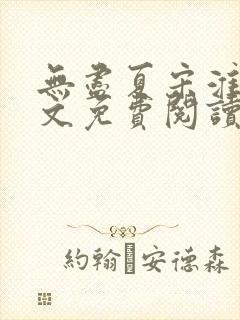 無盡夏宋淮
文免費閱讀
約翰 安德森